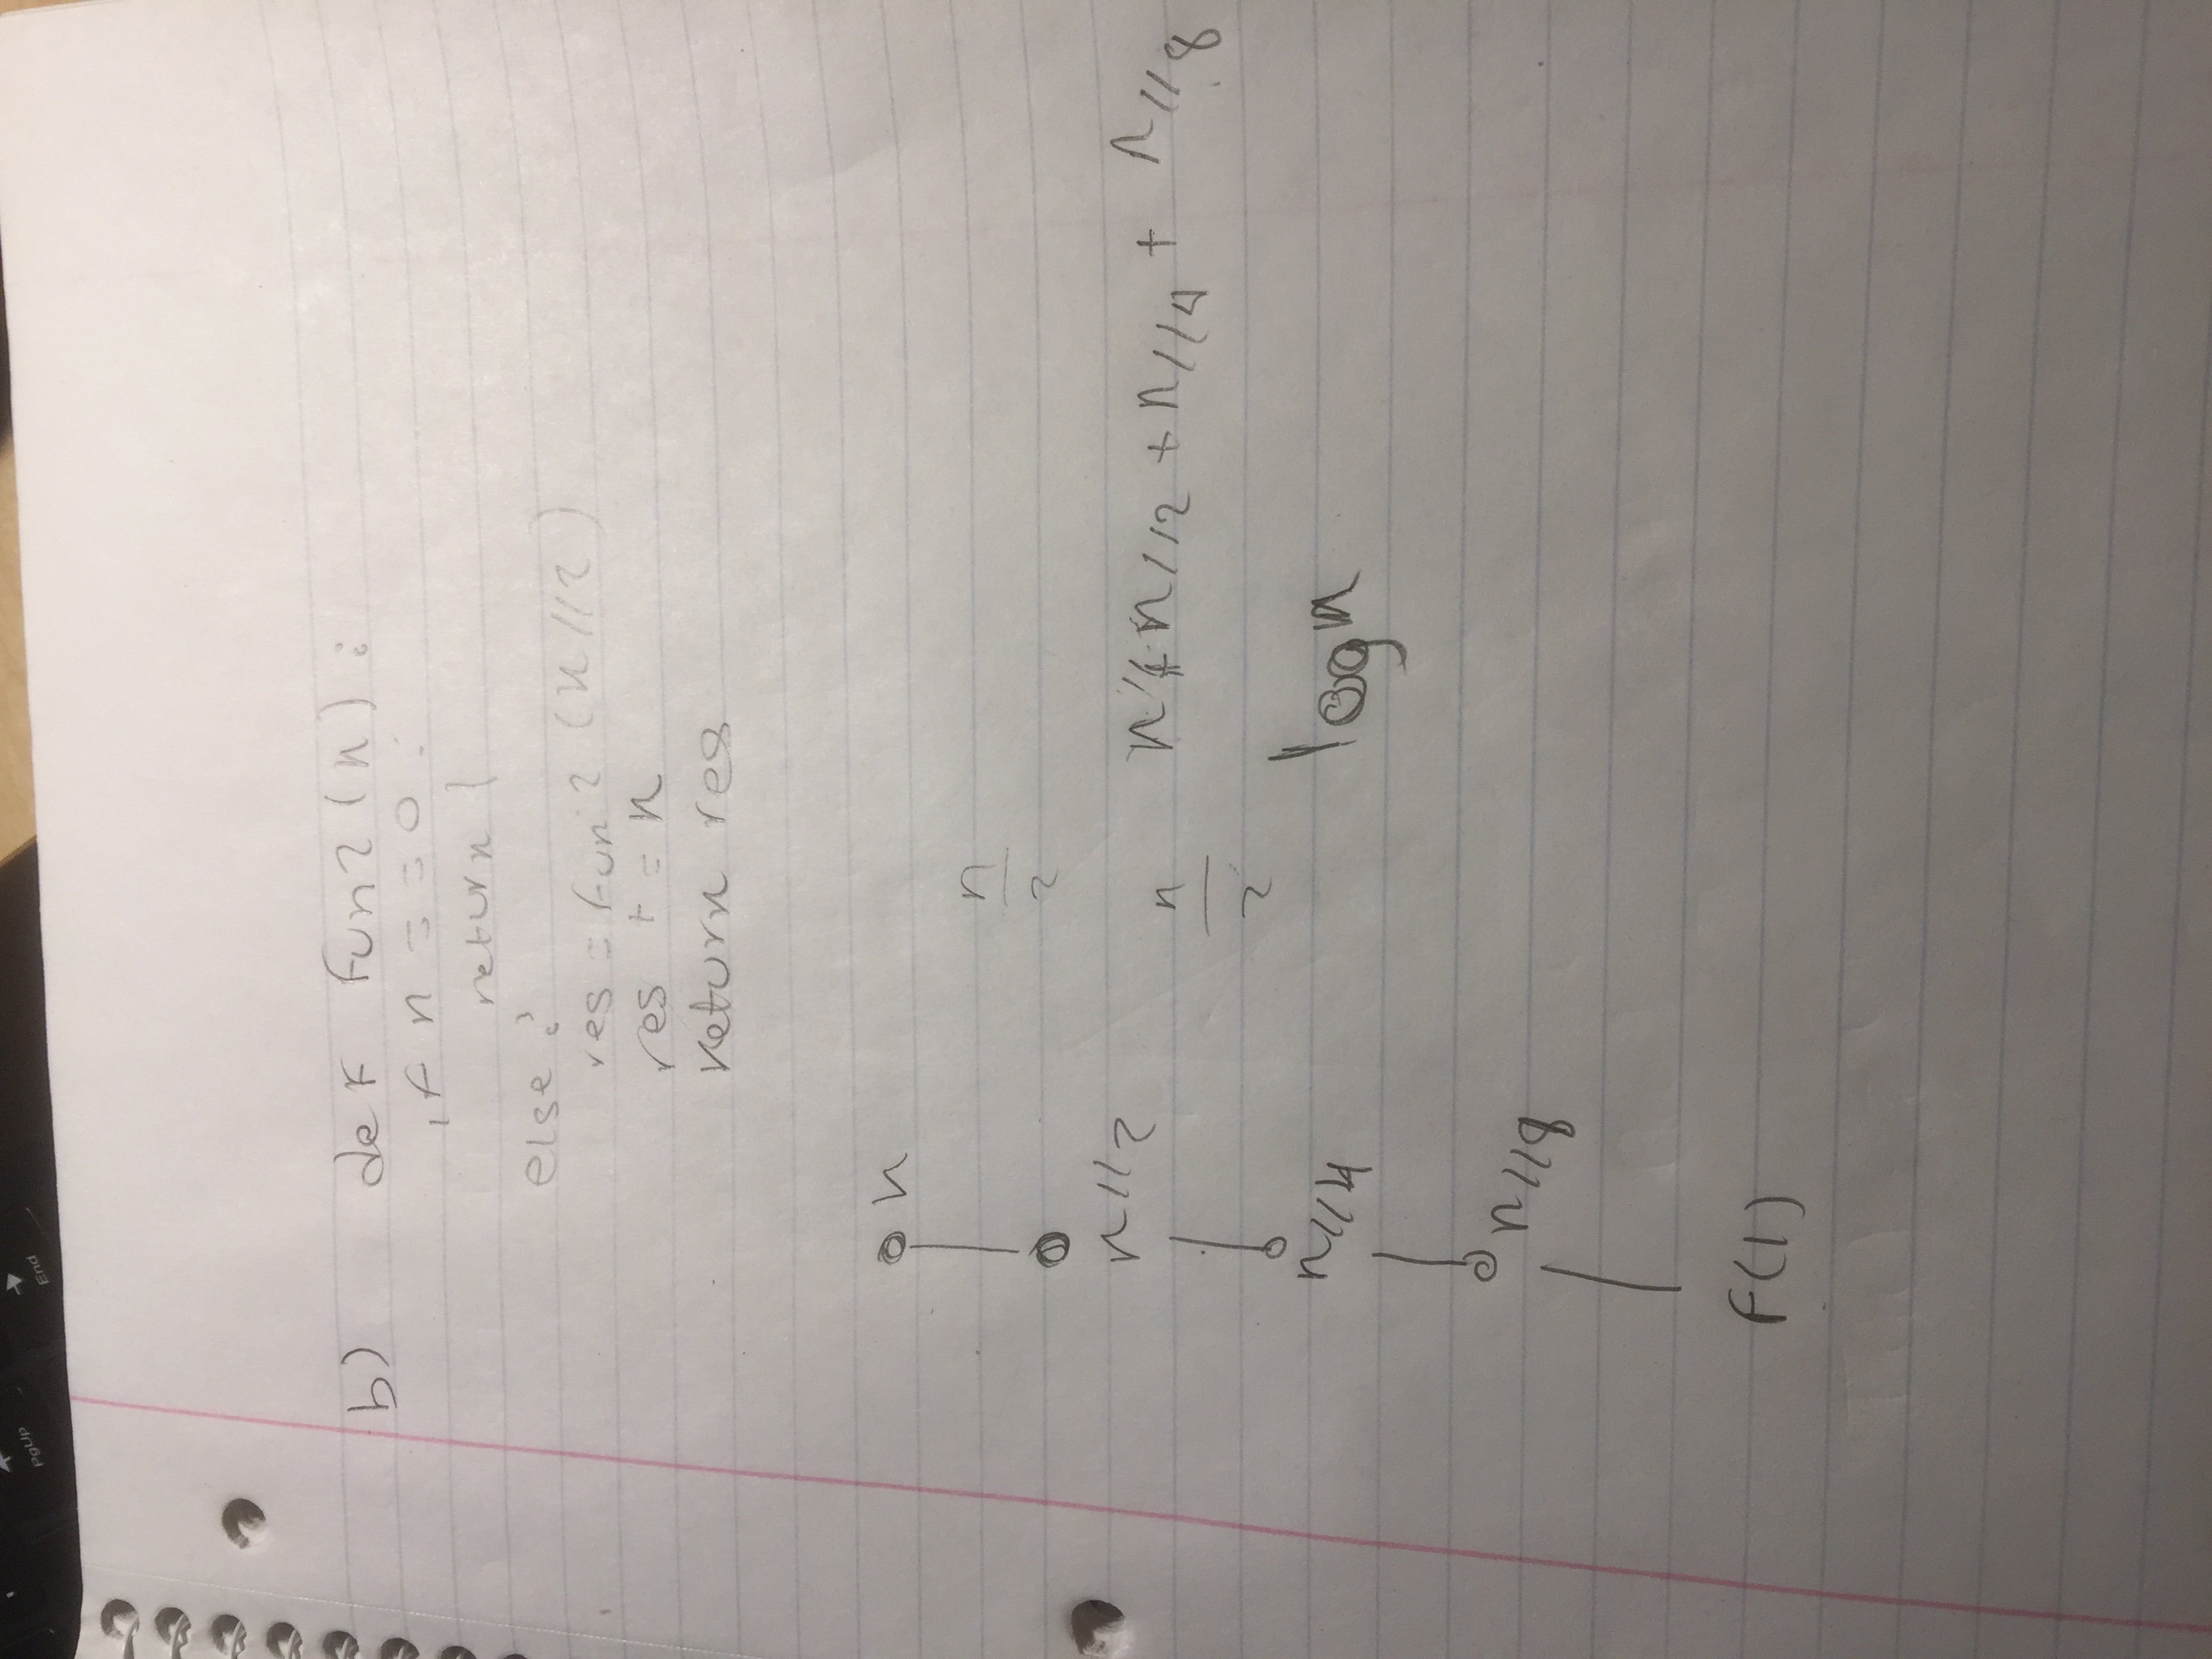 PgUp
End
b) def fun2(n):
if n == 0:
return 1
else:
res = fun2(n//2)
res += n
return res
n
n
2
n//2
n
2
n + n//2 + n//4 + n//8
n//4
logn
n//8
F(1)